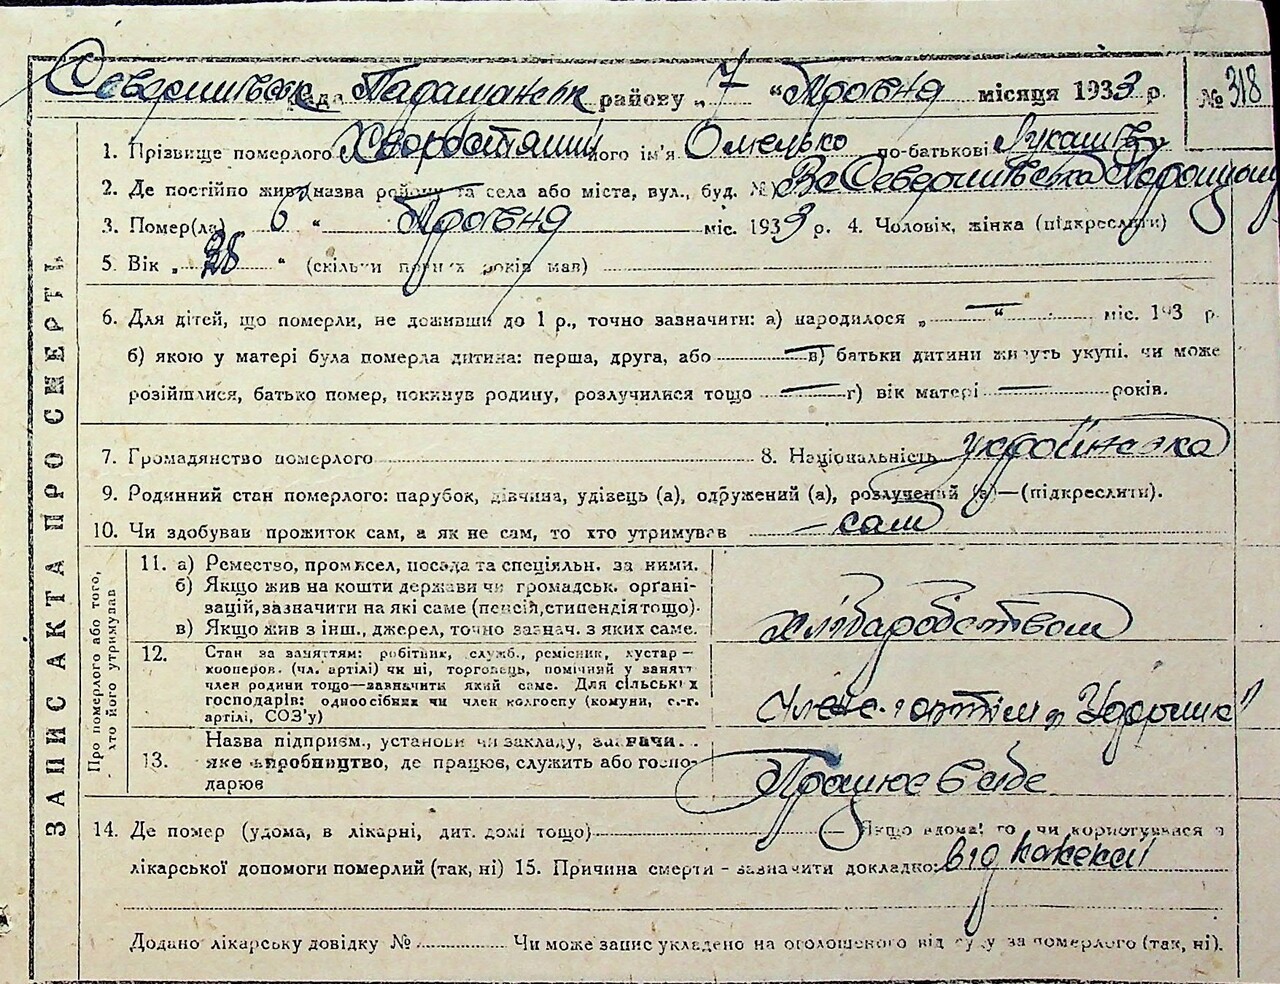 рада районy „ 7 “ місяця 1933 р. № 318
1. Прізвище померлого його ім'я Омелько по-батькові Лукашів
2. Де постійно жив (назва району та села або міста, вул., буд. №)
3. Помер(ла) 6 “ міс. 1933 р. 4. Чоловік, жінка (підкреслити)
5. Вік „ 38 “ (скільки повних років мав)
6. Для дітей, що померли, не доживши до 1 р., точно зазначити: а) народилося „ — “ міс. 193 р.
б) якою у матері була померла дитина: перша, друга, або — в) батьки дитини живуть укупі, чи може
розійшлися, батько помер, покинув родину, розлучилися тощо — г) вік матері — років.
7. Громадянство померлого 8. Національність українка
9. Родинний стан померлого: парубок, дівчина, удівець (а), одружений (а), розлучений (а)—(підкреслити).
10. Чи здобував прожиток сам, а як не сам, то хто утримував — сам
Про померлого або того, хто його утримував
11. а) Ремество, промисел, посада та спеціяльн. за ними.
б) Якщо жив на кошти держави чи громадськ. органі-
зацій, зазначити на які саме (пенсій, стипендія тощо).
в) Якщо жив з інш., джерел, точно зазнач. з яких саме.
Хліборобством
12. Стан за заняттям: робітник, служб., ремісник, кустар—
кооперов. (чл. артілі) чи ні, торговець, помічний у занятт
член родини тощо—зазначити який саме. Для сільських
господарів: одноосібник чи член колгоспу (комуни, с.-г.
артілі, СОЗ'у)
артіли „Ударник“
13. Назва підприєм., установи чи закладу, зазначи..
яке виробництво, де працює, служить або госпо-
дарює
Працює в себе
14. Де помер (удома, в лікарні, дит. домі тощо) Якщо вдома, то чи користувався з
лікарської допомоги померлий (так, ні) 15. Причина смерти - зазначити докладно: від кахексії
Додано лікарську довідку № Чи може запис укладено на оголошеного від суду за померлого (так, ні).
ЗАПИС АКТА ПРО СМЕРТЬ